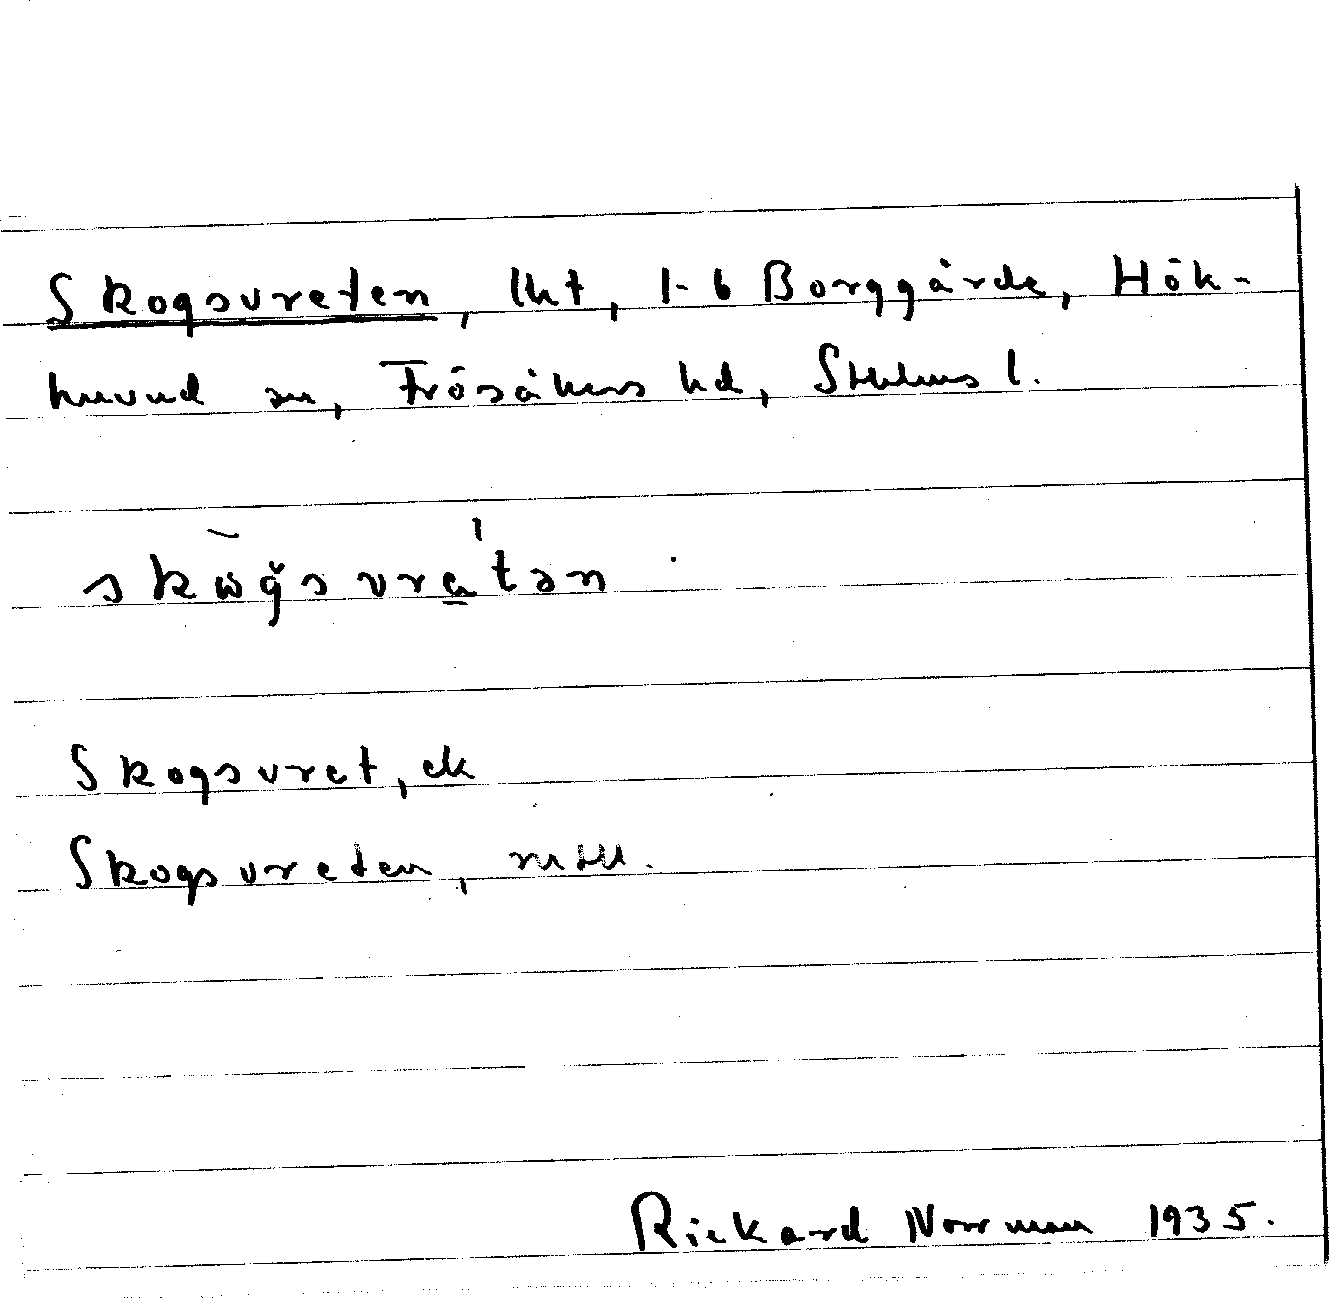 Skogsvreten, lht, 1-6 Borggårde, Hök-
huvud sn, Frösåkers hd, Sthlms l.
skωǧsvra̲tən
Skogsvret, ek
Skogsvreten, mtll.
Rickard Norrman 1935.